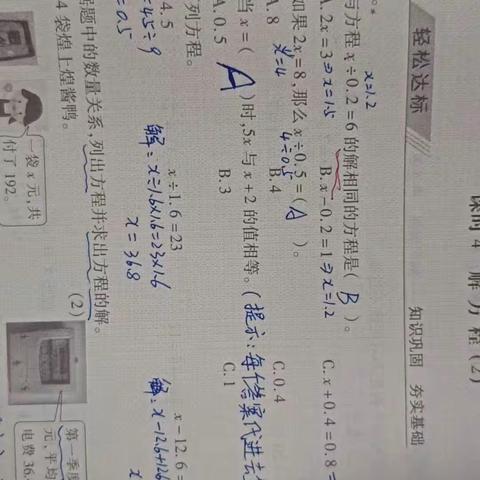 课时 4 解方程(2)
轻松达标 知识巩固 夯实基础
x=1.2
与方程 x÷0.2=6 的解相同的方程是( B )。
A. 2x=3⇒x=1.5 B. x-0.2=1⇒x=1.2 C. x+0.4=0.8
如果 2x=8,那么 x÷0.5=( A )。
A. 8 x=4 4÷0.5 B. 4 C. 0.4
当 x=( A )时,5x 与 x+2 的值相等。(提示:每个答案代进去
A. 0.5 B. 3 C. 1
列方程。
4.5 x÷1.6=23 x-12.6=
=4.5÷9 解:x÷1.6×1.6=23×1.6 解:x-12.6+12.6
=0.5 x=36.8 x
题中的数量关系,列出方程并求出方程的解。
4 袋煌上煌酱鸭。 (2)
一袋 x 元,共
付了 192。
第一季度
元,平均
电费 36.